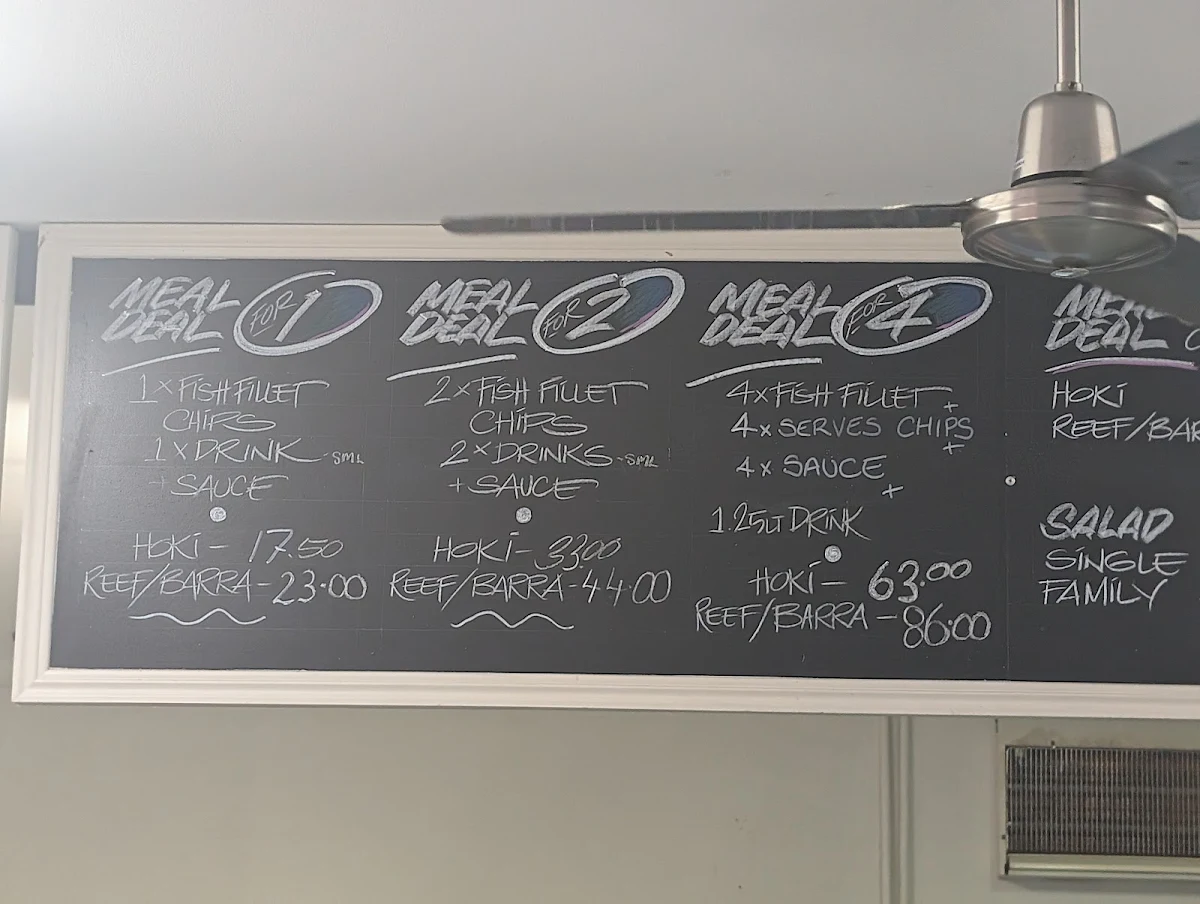 MEAL
DEAL FOR 1
1 x FISH FILLET
CHIPS
1 x DRINK - SML
+ SAUCE
HOKI - 17.50
REEF/BARRA - 23.00
MEAL
DEAL FOR 2
2 x FISH FILLET
CHIPS
2 x DRINKS - SML
+ SAUCE
HOKI - 33.00
REEF/BARRA - 44.00
MEAL
DEAL FOR 4
4 x FISH FILLET +
4 x SERVES CHIPS +
4 x SAUCE +
1.25LT DRINK
HOKI - 63.00
REEF/BARRA - 86.00
DEAL
HOKI
REEF/BAR
SALAD
SINGLE
FAMILY